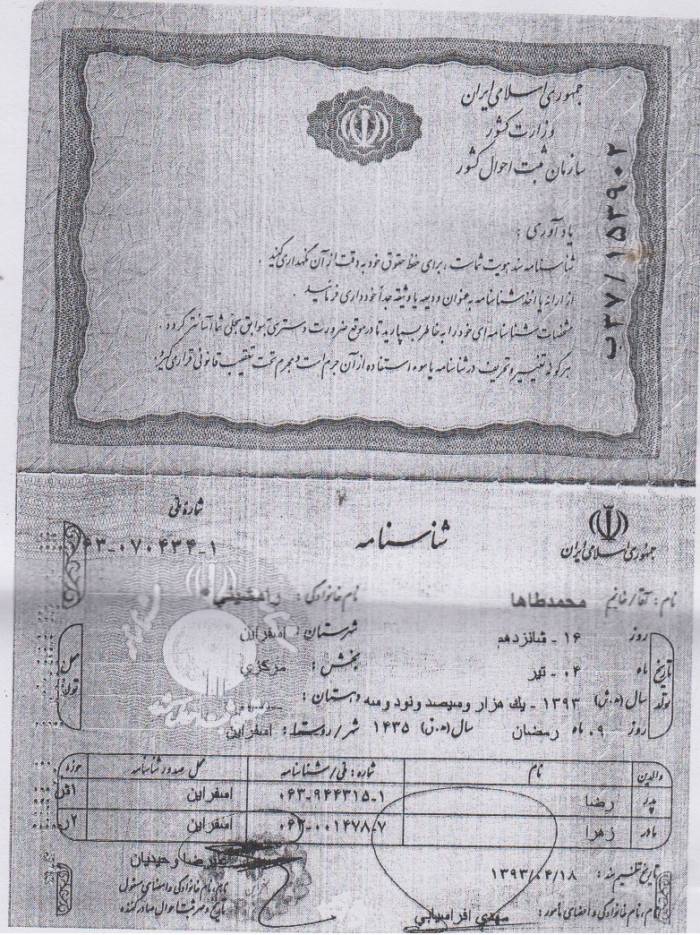 جمهوری اسلامی ایران
وزارت کشور
سازمان ثبت احوال کشور
ب۳۷/۱۵۳۹۰۲
یادآوری :
شناسنامه سند هویت شماست ، برای حفظ حقوق خود به دقت از آن نگهداری کنید .
از ارایه یا اخذ شناسنامه به عنوان ودیعه یا وثیقه جداً خودداری فرمائید .
مشخصات شناسنامه ای خود را به خاطر بسپارید تا در موقع ضرورت دسترسی به سوابق سجلی شما آسانتر گردد .
هرگونه تغییر و تحریف در شناسنامه یا سوء استفاده از آن جرم است و مجرم تحت تعقیب قانونی قرار می گیرد.
جمهوری اسلامی ایران
شناسنامه
شماره ملی
۰۶۳-۰۷۰۴۳۴-۱
نام : آقا/خانم محمدطاها نام خانوادگی :
روز ۱۶ - شانزدهم شهرستان : اسفراین
تاریخ تولد ماه ۰۴ - تیر بخش : مرکزی محل تولد
سال (ه.ش) ۱۳۹۳ - یک هزار و سیصد و نود و سه دهستان :
روز ۰۹ ماه رمضان سال (ه.ق) ۱۴۳۵ شهر/روستا : اسفراین
والدین نام شماره : ملی/شناسنامه محل صدور شناسنامه حوزه
پدر رضا ۰۶۳-۹۴۴۳۱۵-۱ اسفراین
مادر زهرا ۰۶۳-۰۰۱۴۷۸-۷ اسفراین
تاریخ تنظیم سند : ۱۳۹۳/۰۴/۱۸
علیرضا وحیدیان
نام، نام خانوادگی و امضای مأمور : مهدی افراسیابی
نام، نام خانوادگی و امضای مسئول
تاریخ و مهر ثبت احوال صادر کننده